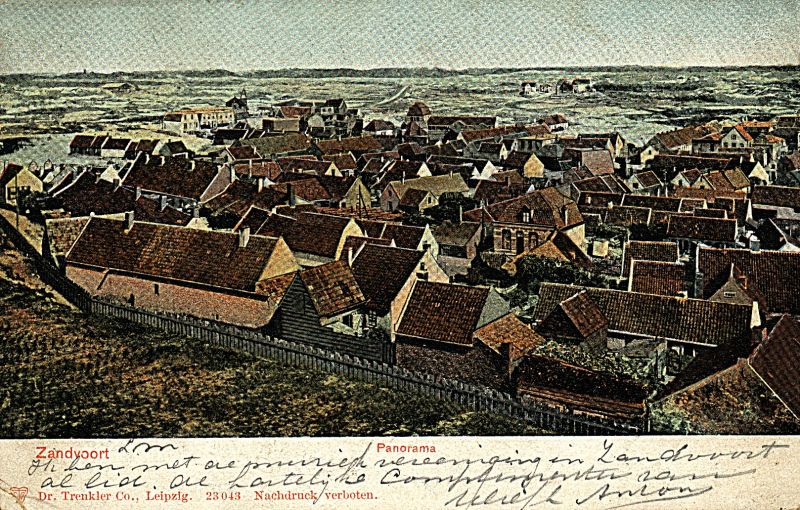 Zandvoort
Panorama
L m
Ik ben met de muziek vereeniging in Zandvoort
al lid. de hartelijke Complimenten van
Anton
Dr. Trenkler Co., Leipzig. 23043 Nachdruck verboten.